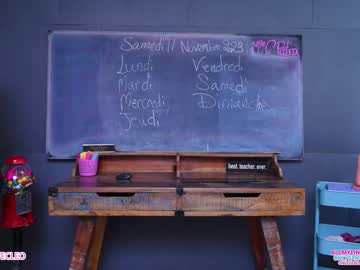 Samedi 11 Novembre 2023
Mlle C Patra
Lundi
Mardi
Mercredi
Jeudi
Vendredi
Samedi
Dimanche
best. teacher. ever.
ECLEO